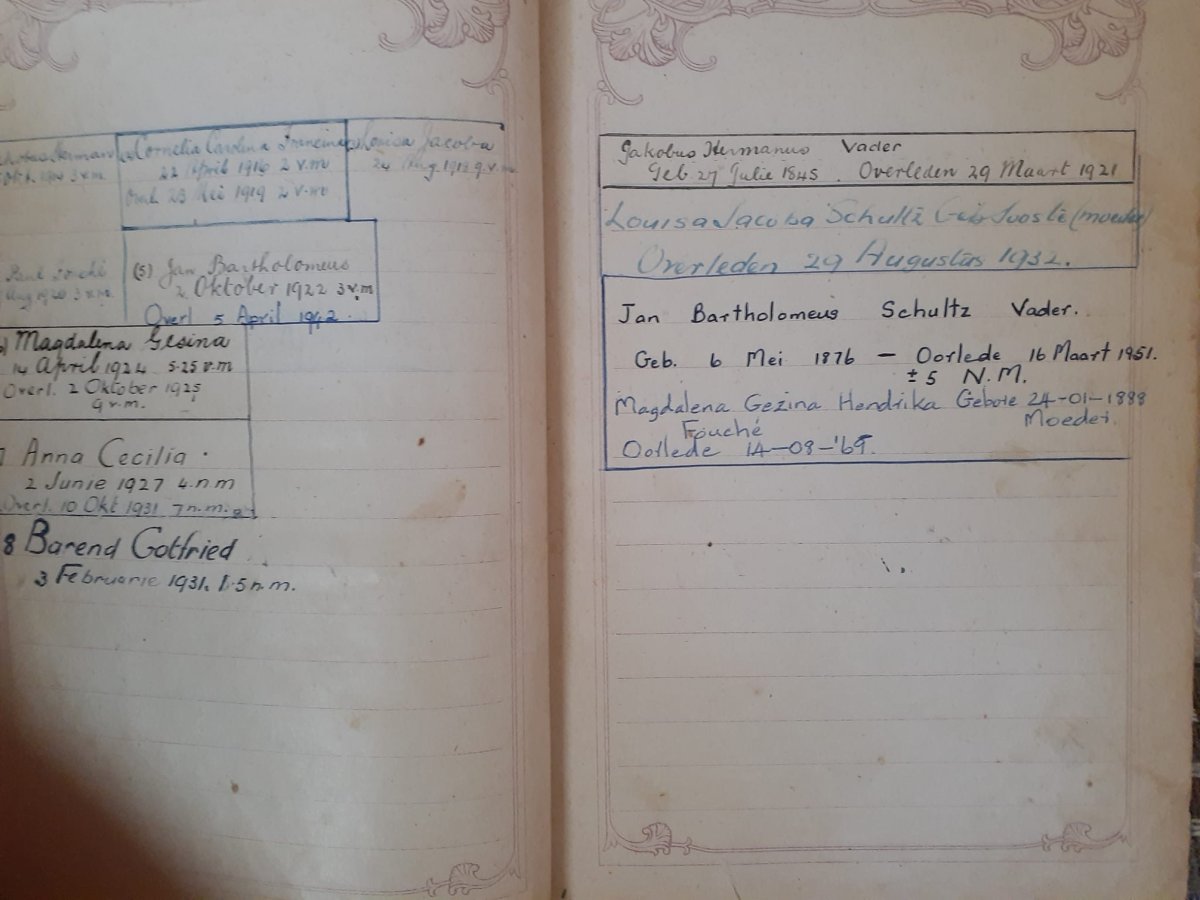 Cornelia Carolina Francina
22 April 1916 2 v.m
Overl 23 Mei 1919 2 v.m
Louisa Jacoba
24 Aug. 1918 9 v.m.
(5) Jan Bartholomeus
2 Oktober 1922 3 v.m
Overl 5 April 1942.
Magdalena Gesina
14 April 1924 5.25 v.m
Overl. 2 Oktober 1925
9 v.m.
7 Anna Cecilia.
2 Junie 1927 4.n.m
Overl. 10 Okt 1931 7 n.m.
8 Barend Gotfried
3 Februarie 1931. 1.5 n.m.
Jakobus Hermanus Vader
Geb. 27 Julie 1845. Overleden 29 Maart 1921
Louisa Jacoba Schultz Geb. Joosté (moeder)
Overleden 29 Augustus 1932.
Jan Bartholomeus Schultz Vader.
Geb. 6 Mei 1876 — Oorlede 16 Maart 1951.
± 5 N.M.
Magdalena Gezina Hendrika Gebore 24-01-1888
Fouché Moeder.
Oorlede 14-08-'69.